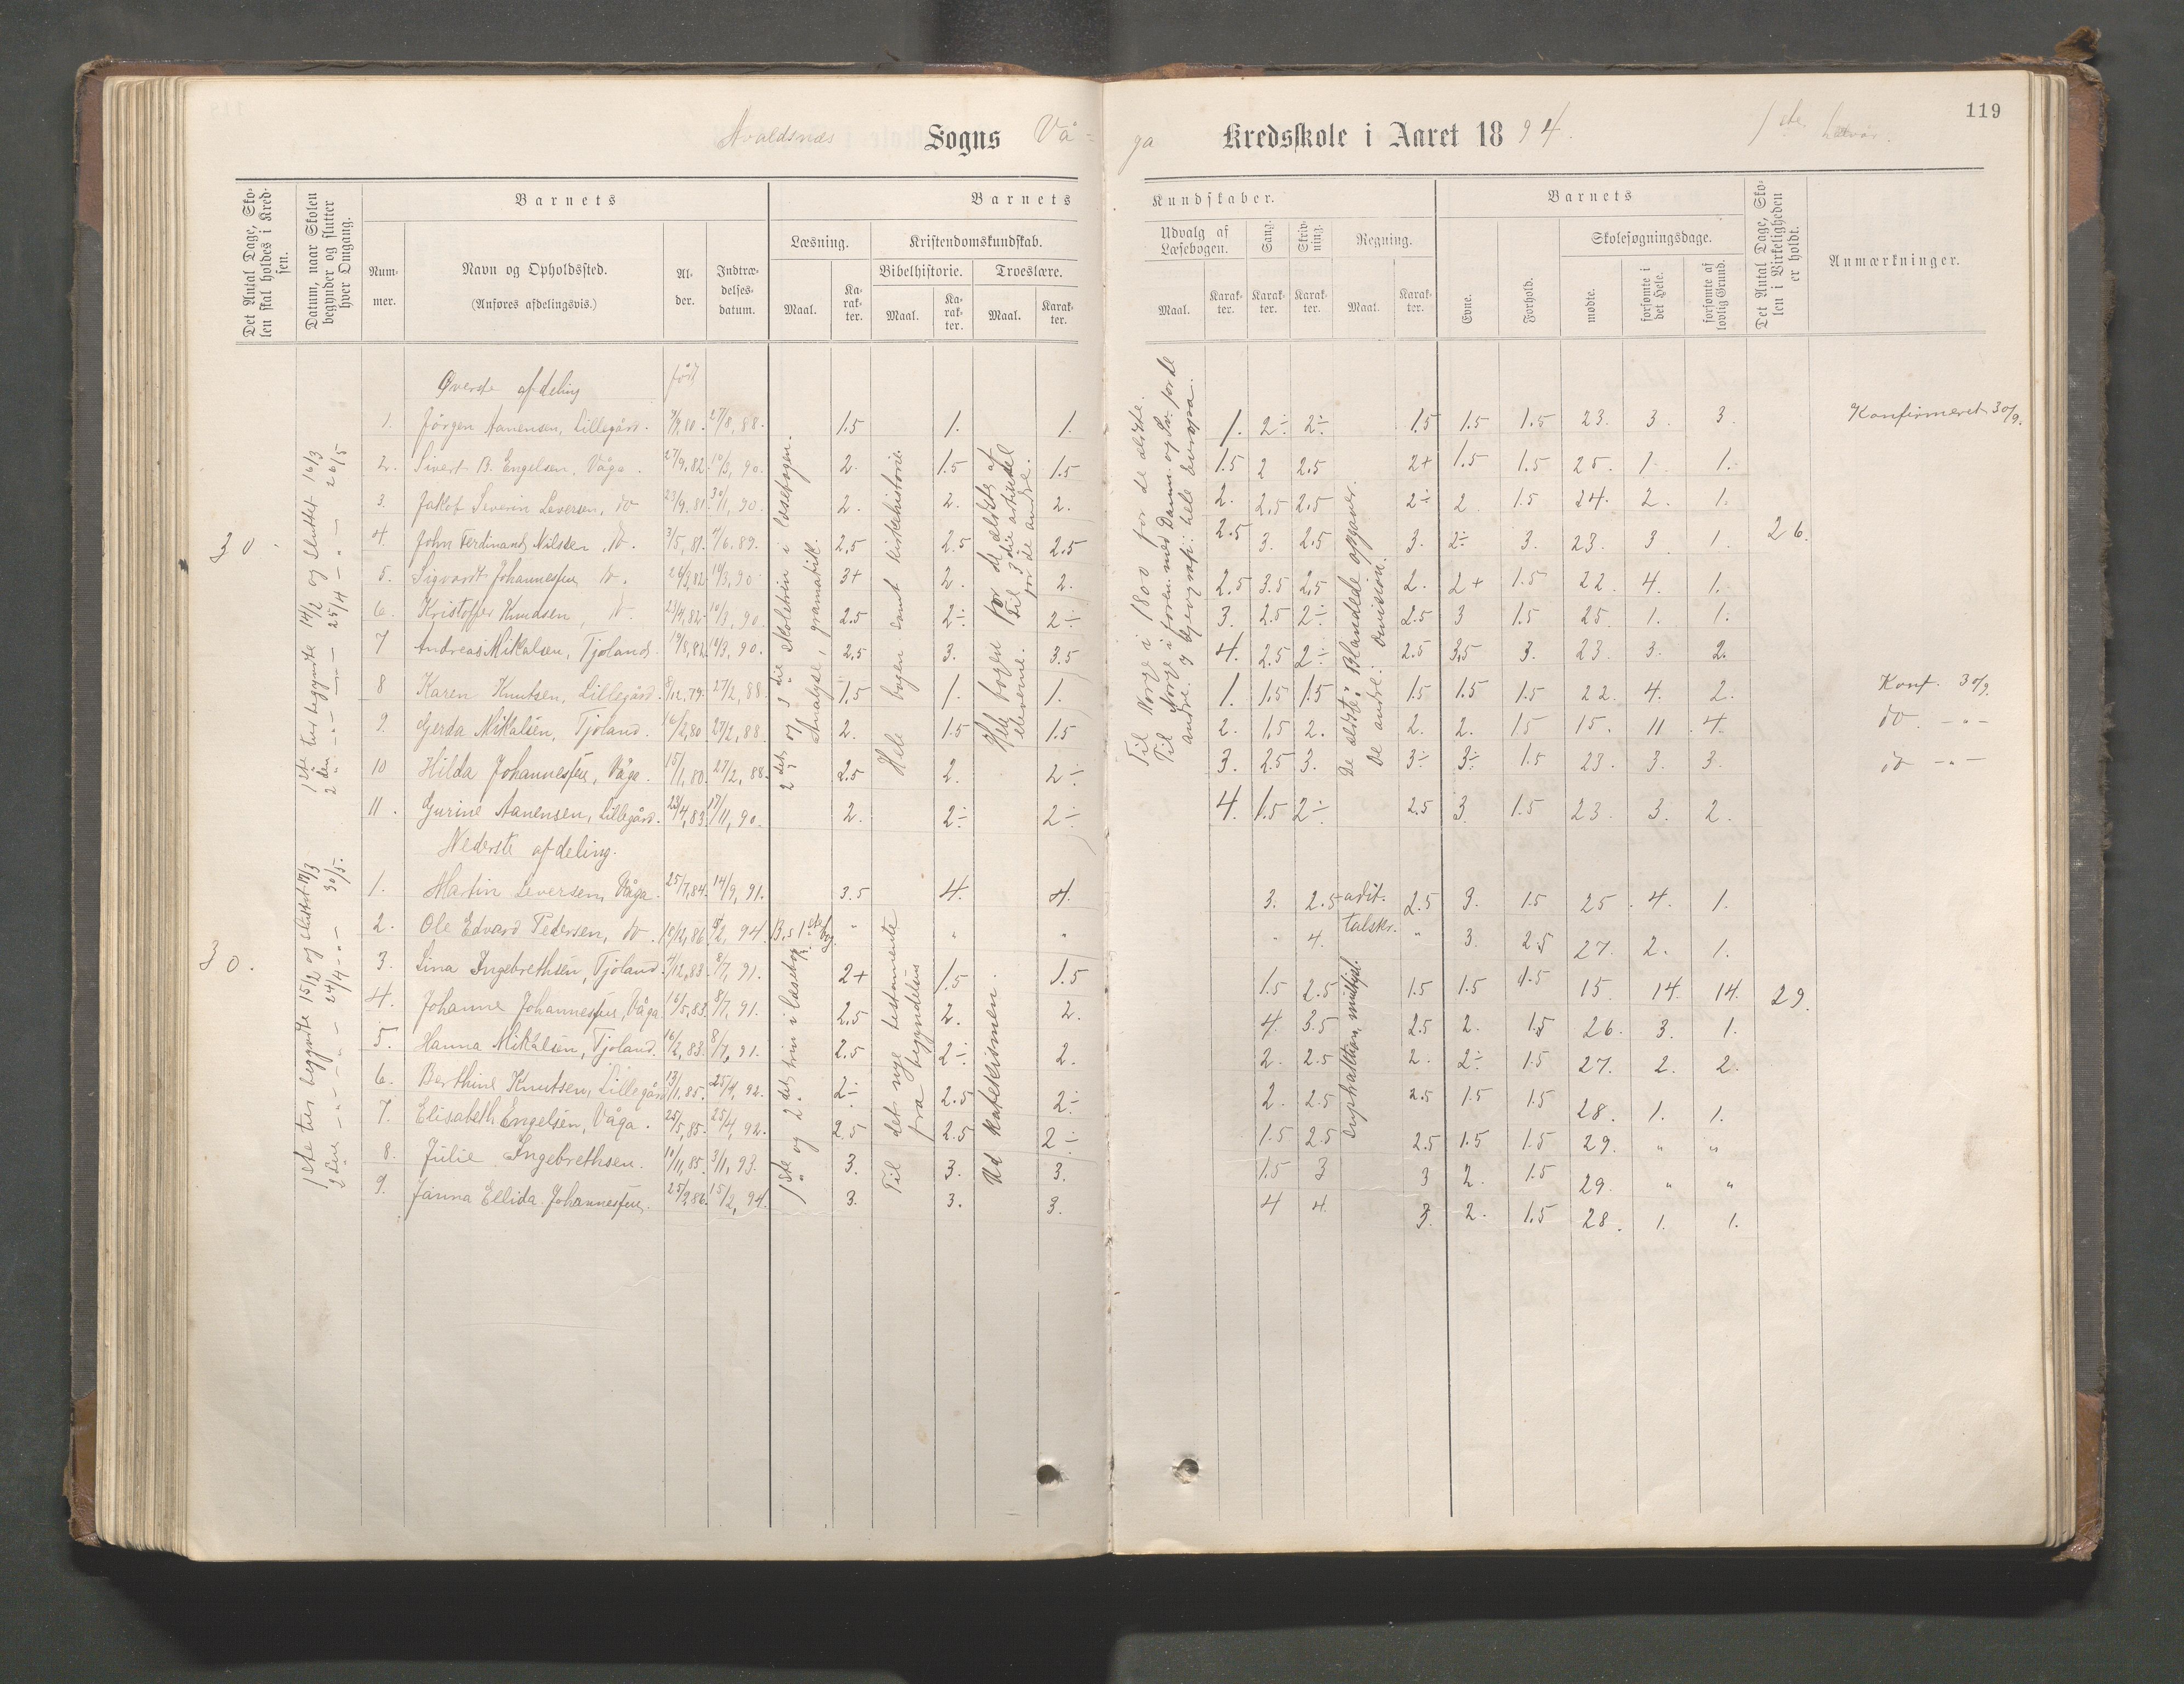 119
Avaldsnes Sogns Våga Kredsskole i Aaret 1894. 1ste halvår.
Det Antal Dage, Skolen skal holdes i Kredsen.
Datum, naar Skolen begynder og slutter hver Omgang.
Barnets
Barnets
Kundskaber.
Barnets
Det Antal Dage, Skolen i Virkeligheden er holdt.
Anmærkninger.
Nummer.
Navn og Opholdssted.
(Anføres afdelingsvis.)
Alder.
Indtrædelsesdatum.
Læsning.
Kristendomskundskab.
Bibelhistorie.
Troeslære.
Udvalg af Læsebogen.
Sang.
Skrivning.
Regning.
Evne.
Forhold.
Skolesøgningsdage.
mødte.
forsømte i det Hele.
forsømte af lovlig Grund.
Maal. Karakter. Maal. Karakter. Maal. Karakter. Maal. Karakter. Karakter. Karakter. Maal. Karakter.
Øverste afdeling født
1. Jörgen Aanensen, Lillegård. 7/9,80. 27/8,88. 1.5 1. 1. 1. 2÷ 2÷ 1.5 1.5 1.5 23. 3. 3. Konfirmeret 30/9.
2. Sivert B. Engelsen, Våga. 27/9,82. 10/3,90. 2. 1.5 1.5 1.5 2 2.5 2+ 1.5 1.5 25. 1 1.
3. Jakob Severin Leversen, do 23/9,81. 30/1,90. 2. 2. 2. 2. 2.5 2.5 2÷ 2 1.5 24. 2. 1.
4. John Ferdinand Nilssen, do. 3/5,81. 4/6.89. 2.5 2.5 2.5 2.5 3. 2.5 3. 2÷ 3. 23. 3 1.
5. Sigvardt Johannessen, do. 24/3,82. 10/3,90 3+ 2. 2. 2.5 3.5 2.5 2. 2+ 1.5 22. 4. 1.
6. Kristoffer Knudsen, do. 23/4,82. 10/3,90. 2.5 2÷ 2÷ 3. 2.5 2÷ 2.5 3 1.5 25. 1. 1.
7 Andreas Mikalsen, Tjoland. 19/8,82. 10/3,90. 2.5 3. 3.5 4. 2.5 2÷ 2.5 3.5 3. 23. 3. 2.
8 Karen Knutsen, Lillegård. 8/12,79. 27/2,88. 1.5 1. 1. 1. 1.5 1.5 1.5 1.5 1.5 22. 4. 2. Konf. 30/9.
9. Gerda Mikalsen, Tjoland. 16/2,80 27/2,88 2. 1.5 1.5 2. 1.5 2. 2. 2. 15 15. 11 4. do. -"-
10 Hilda Johannessen, Våga. 15/1,80. 27/2,88. 2.5 2. 2÷ 3. 2.5 3. 3÷ 3÷ 1.5 23. 3. 3. do -"-
11. Gurine Aanensen, Lillegård. 23/4,83. 17/11,90. 2. 2÷ 2÷ 4. 1.5 2÷ 2.5 3. 1.5 23. 3. 2.
30. 26.
1ste tur begynte 14/2 og sluttet 16/3
2den -"- -"- 25/4 -"- 26/5
2det og 3die skoletrin i læsebogen.
Analyse, gramatik.
Hele bogen samt kirkehistorie
Hele bogen for de ældste af elevene. Til 3die artikel for de andre.
Til Norge i 1800 for de ældste.
Til Norge i foren. med Danm. og Sv. for de andre. Geografi: hele Europa.
De ældste: Blandede opgaver.
De andre: Division.
Nederste afdeling.
1. Martin Leversen, Våga. 25/7,84. 14/9,91. 3.5 4. 4. 3. 2.5 adit. 2.5 3. 1.5 25. 4. 1.
2. Ole Edvard Pedersen, do. 18/12,86. 15/2,94. " " " " 4. talskr. " 3. 2.5 27. 2. 1.
3. Lina Ingebrethsen, Tjoland. 7/12,83. 8/7,91. 2+ 1.5 1.5 1.5 2.5 1.5 1.5 1.5 15. 14. 14.
4. Johanne Johannessen, Våga 16/5,83. 8/7,91. 2.5 2. 2. 4. 3.5 2.5 2. 1.5 26. 3. 1.
5. Hanna Mikalsen, Tjoland. 16/2,83. 8/7,91. 2.5 2÷ 2. 2. 2.5 2. 2÷ 1.5 27. 2. 2.
6. Berthine Knutsen, Lillegård 13/1,85. 25/4,92. 2÷ 2.5 2÷ 2. 2.5 2.5 1.5 1.5 28. 1. 1.
7. Elisabeth Engelsen, Våga. 25/5,85. 25/4,92. 2.5 2.5 2÷ 1.5 2.5 2.5 1.5 1.5 29. " "
8. Julie Ingebrethsen. 10/11,85. 3/1,93. 3. 3. 3. 1.5 3 3 2. 1.5 29. " "
9. Janna Ellida Johannessen. 25/2,86. 15/2,94. 3. 3. 3. 4 4. 3. 2. 1.5 28. 1. 1.
30. 29.
1ste tur begynte 15/2 og sluttet 17/3
2den -"- -"- 24/4 -"- 30/5.
1ste og 2det trin i læsebog.
Til det nye testamente fra begyndelsen
Ud katekismen.
subtraktion, multipl.